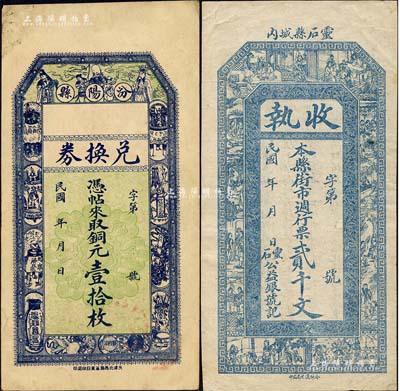 上海陽明拍賣
汾陽縣
兌換券
字第 號
憑帖來取銅元壹拾枚
民國 年 月 日
靈石縣城內
收執
字第 號
本縣街市通行票貳千文
民國 年 月 日
靈石公益銀號記